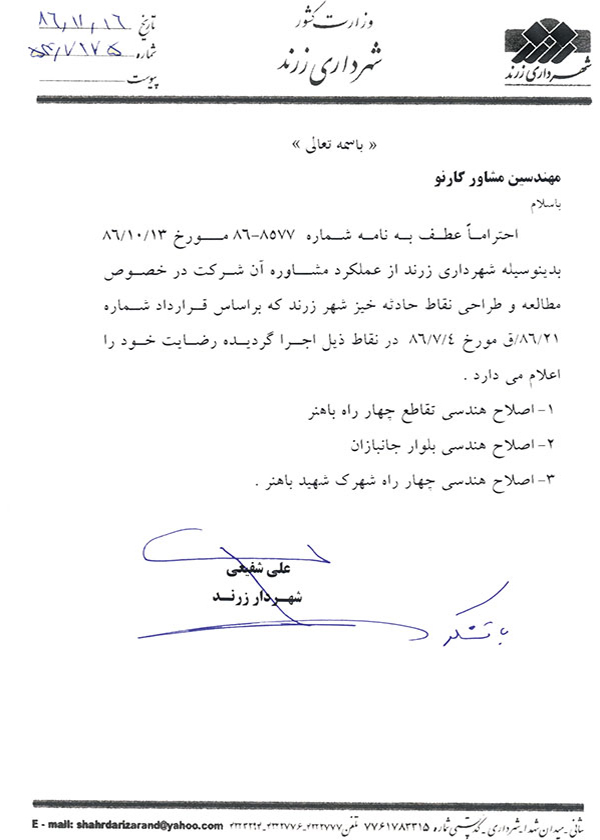 وزارت کشور
شهرداری زرند
شهرداری زرند
تاریخ ۸۶/۱۱/۱۶
شماره
پیوست
« باسمه تعالی »
مهندسین مشاور گارنو
باسلام
احتراماً عطف به نامه شماره ۸۵۷۷-۸۶ مورخ ۸۶/۱۰/۱۳
بدینوسیله شهرداری زرند از عملکرد مشاوره آن شرکت در خصوص
مطالعه و طراحی نقاط حادثه خیز شهر زرند که براساس قرارداد شماره
۸۶/۲۱/ق مورخ ۸۶/۷/٤ در نقاط ذیل اجرا گردیده رضایت خود را
اعلام می دارد .
۱- اصلاح هندسی تقاطع چهار راه باهنر
۲- اصلاح هندسی بلوار جانبازان
۳- اصلاح هندسی چهار راه شهرک شهید باهنر .
علی شفیعی
شهردار زرند
با تشکر
نشانی-میدان شهدا-شهرداری - کد پستی شماره ۷۷۶۱۷۸۳۳۱۵ تلفن ۴۲۲۲۷۷۷-۴۲۲۲۷۷۶-
E - mail: shahrdarizarand@yahoo.com